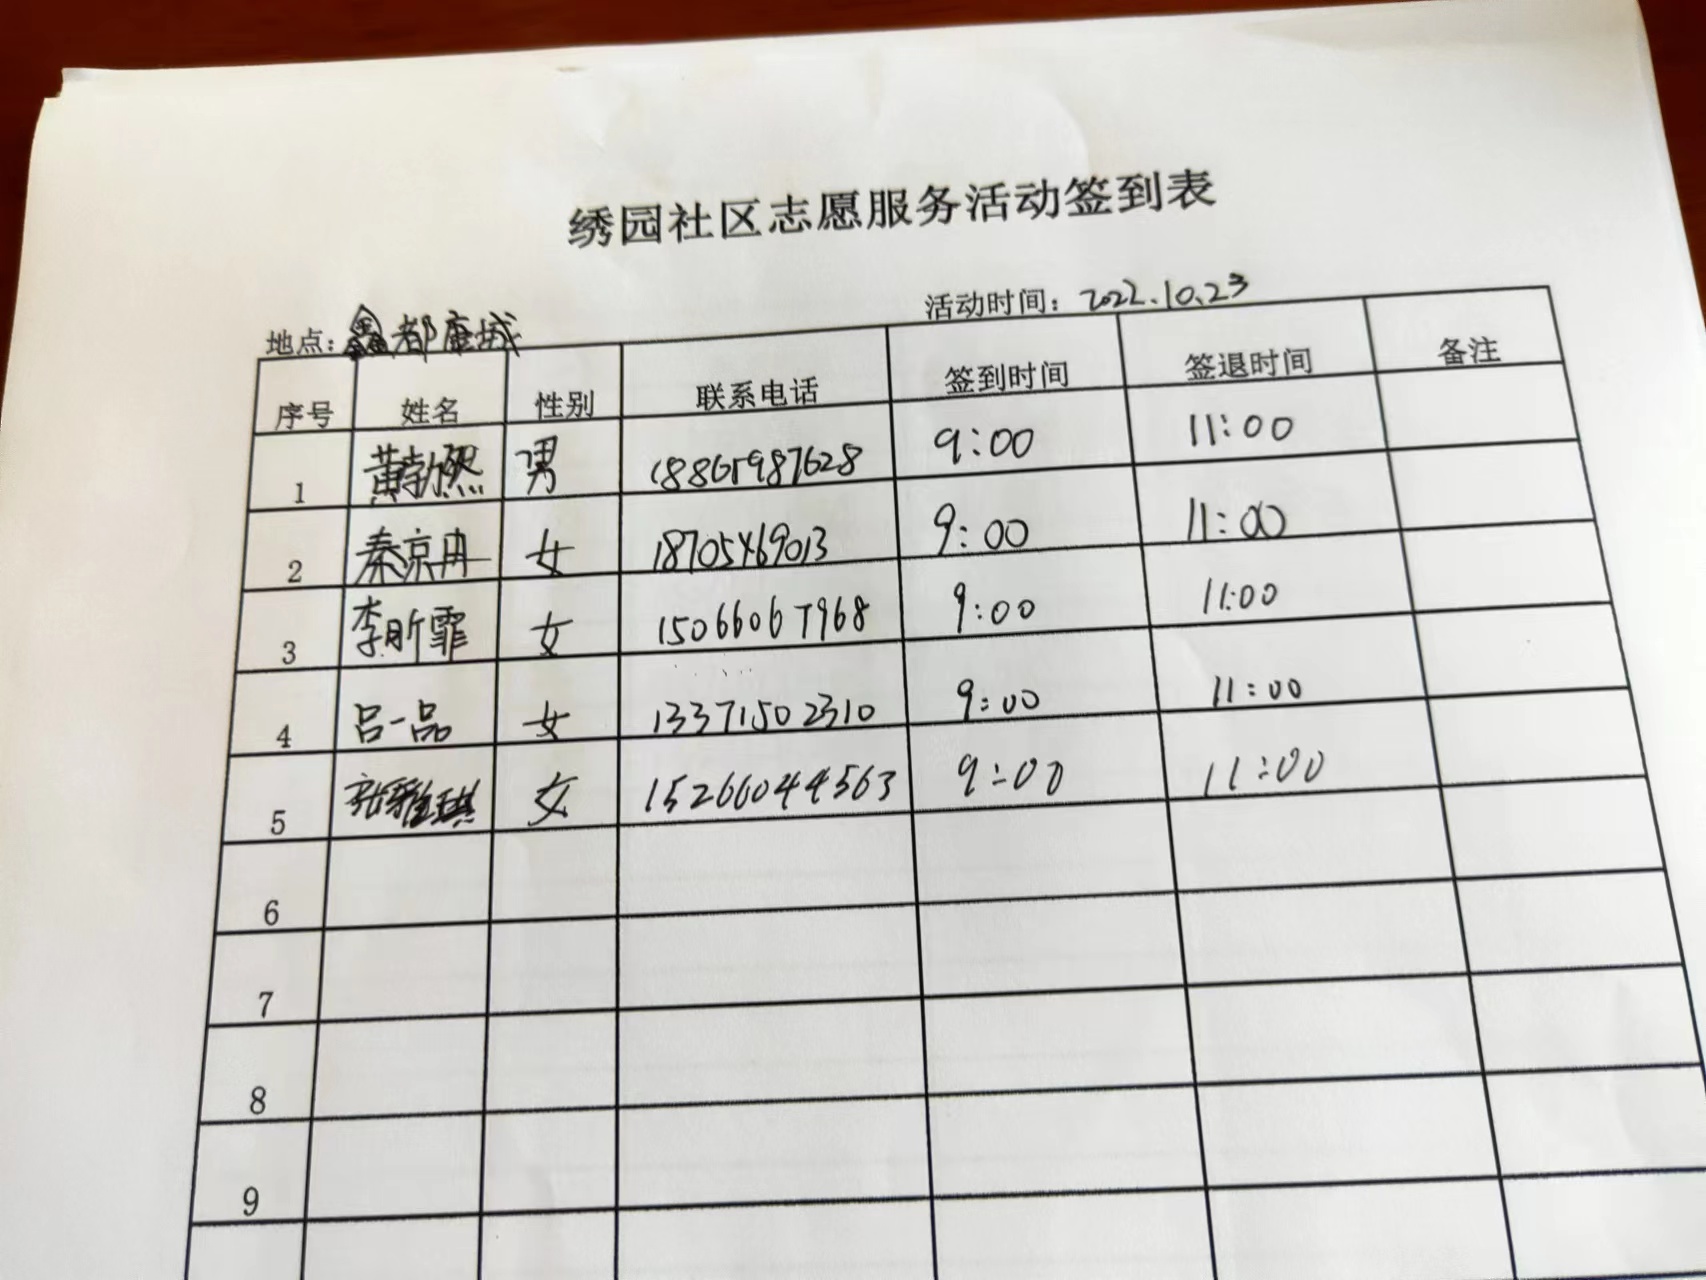 绣园社区志愿服务活动签到表
地点：鑫都康城 活动时间：2022.10.23
序号 姓名 性别 联系电话 签到时间 签退时间 备注
1 黄勃熙 男 18865987628 9:00 11:00
2 秦京冉 女 18705469013 9:00 11:00
3 李昕霏 女 15066067968 9:00 11:00
4 吕一品 女 13371502310 9:00 11:00
5 张雅琪 女 15266044563 9:00 11:00
6
7
8
9